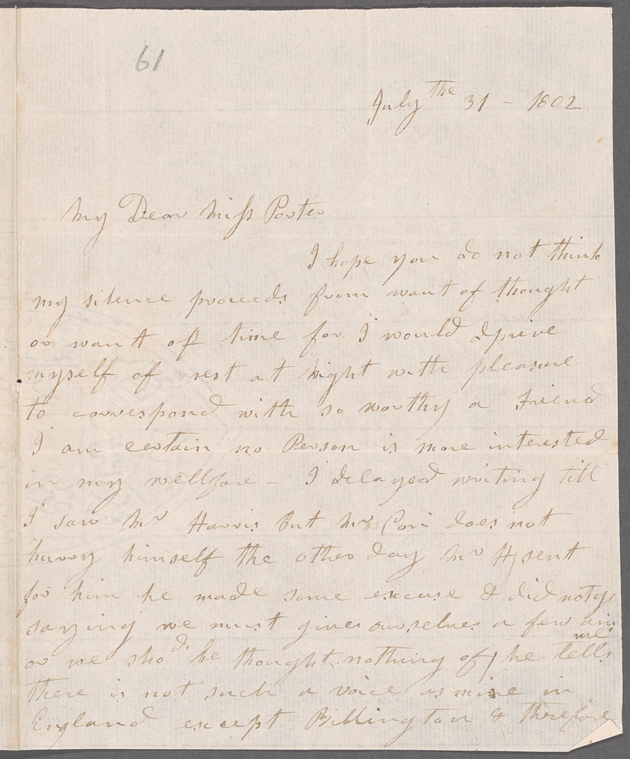 61
July the 31 - 1802
My Dear Miss Porter
I hope you do not think
my silence proceeds from want of thought
or want of time for I would deprive
myself of rest at night with pleasure
to correspond with so worthy a friend
I am certain no Person is more interested
in my wellfare - I delayed writing till
I saw Mr Harris But Mr Cori does not
hurry himself the other day Mr H sent
for him he made some excuse & did not go
saying we must give ourselves a few airs
or we shod be thought nothing of, he tells me
there is not such a voice as mine in
England except Billington & therefore